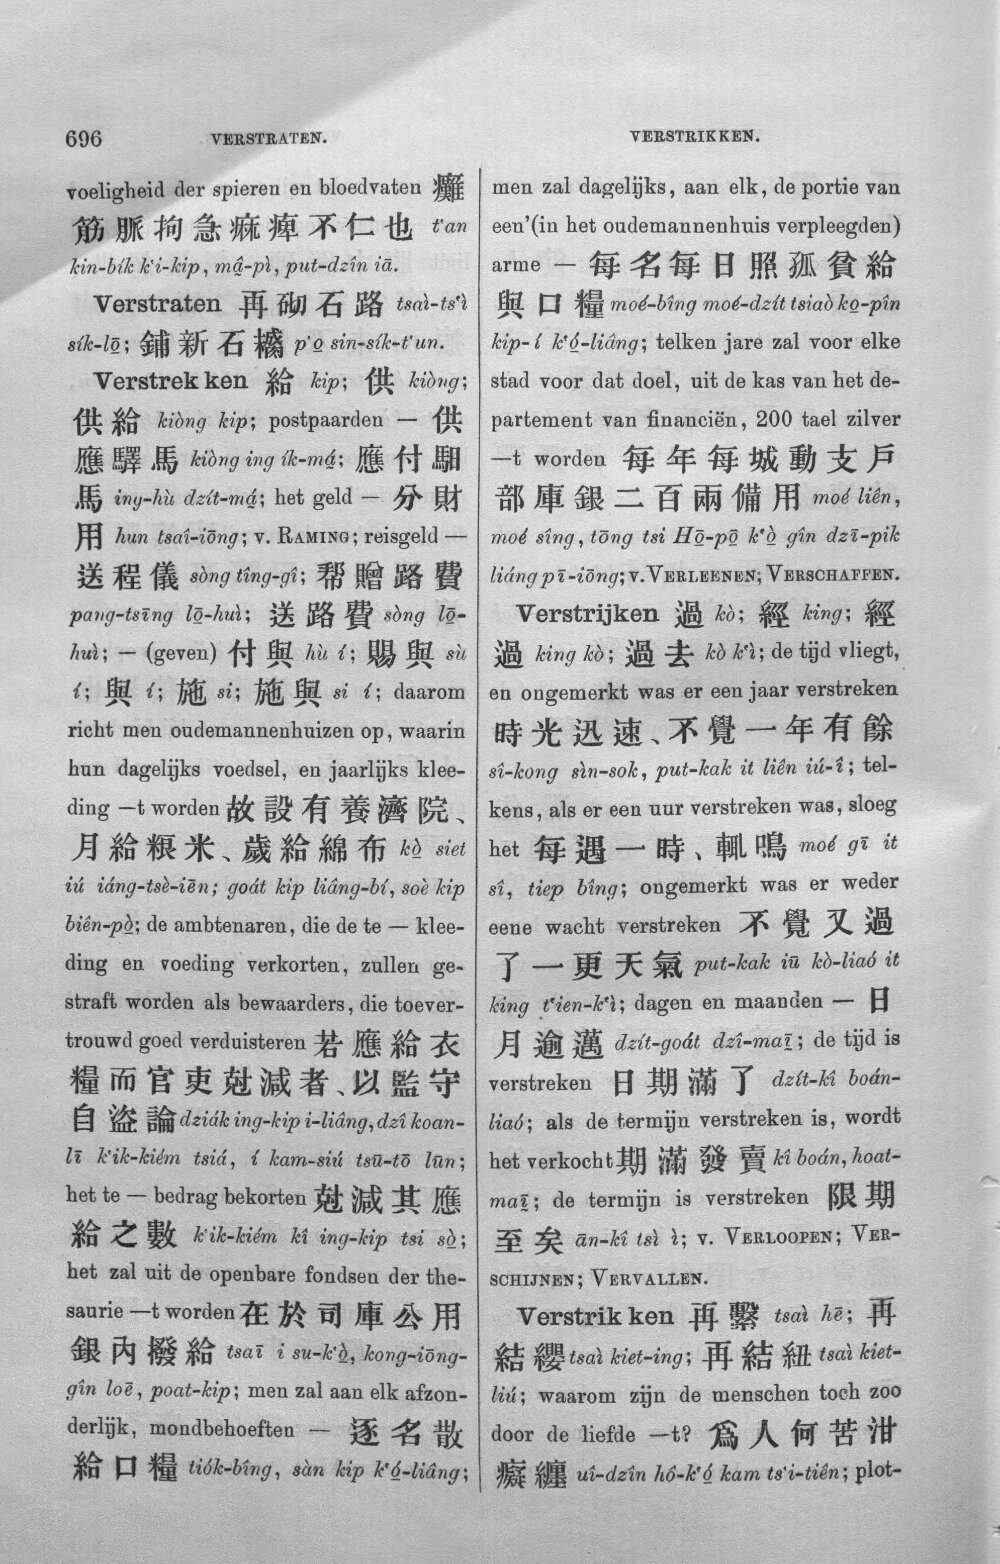 696
VERSTRATEN.
VERSTRIKKEN.
voeligheid der spieren en bloedvaten 癱
筋脈拘急痲痺不仁也 t‘an
kin-bík k‘i-kip, mâ̤-pì, put-dzîn iā.
Verstraten 再砌石路 tsaì-ts‘ì
sík-lō͘; 鋪新石 p‘o͘ sin-sík-t‘un.
Verstrekken 給 kip; 供 kiòng;
供給 kiòng kip; postpaarden — 供
應驛馬 kiòng ing ík-má̤; 應付馹
馬 ing-hù dzít-má̤; het geld — 分財
用 hun tsaî-iōng; v. RAMING; reisgeld —
送程儀 sòng tîng-gî; 帮贈路費
pang-tsīng lō͘-huì; 送路費 sòng lō͘-
huì; — (geven) 付與 hù í; 賜與 sù
í; 與 í; 施 si; 施與 si í; daarom
richt men oudemannenhuizen op, waarin
hun dagelijks voedsel, en jaarlijks klee-
ding —t worden 故設有養濟院、
月給粮米、歲給綿布 kò͘ siet
iú iáng-tsè-iēn; goát kip liâng-bí, soè kip
biên-pò͘; de ambtenaren, die de te — klee-
ding en voeding verkorten, zullen ge-
straft worden als bewaarders, die toever-
trouwd goed verduisteren 若應給衣
糧而官吏尅減者、以監守
自盜論 dziák ing-kip i-liâng, dzî koan-
lī k‘ik-kiém tsiá, í kam-siú tsū-tō lūn;
het te — bedrag bekorten 尅減其應
給之數 k‘ik-kiém kî ing-kip tsi sò͘;
het zal uit de openbare fondsen der the-
saurie —t worden 在於司庫公用
銀內撥給 tsaī i su-k‘ò͘, kong-iōng-
gîn loē, poat-kip; men zal aan elk afzon-
derlijk, mondbehoeften — 逐名散
給口糧 tiók-bîng, sàn kip k‘ó͘-liâng;
men zal dagelijks, aan elk, de portie van
een’(in het oudemannenhuis verpleegden)
arme — 每名每日照孤貧給
與口糧 moé-bîng moé-dzít tsiaò ko͘-pîn
kip-í k‘ó͘-liâng; telken jare zal voor elke
stad voor dat doel, uit de kas van het de-
partement van financiën, 200 tael zilver
—t worden 每年每城動支戶
部庫銀二百兩備用 moé liên,
moé sîng, tōng tsi Hō͘-pō͘ k‘ò͘ gîn dzī-pik
liáng pī-iōng; v. VERLEENEN; VERSCHAFFEN.
Verstrijken 過 kò; 經 king; 經
過 king kò; 過去 kò k‘ì; de tijd vliegt,
en ongemerkt was er een jaar verstreken
時光迅速、不覺一年有餘
sî-kong sìn-sok, put-kak it liên iú-î; tel-
kens, als er een uur verstreken was, sloeg
het 每遇一時、輒鳴 moé gī it
sî, tiep bîng; ongemerkt was er weder
eene wacht verstreken 不覺又過
了一更天氣 put-kak iū kò-liaó it
king t‘ien-k‘ì; dagen en maanden — 日
月逾邁 dzít-goát dzî-maī̤; de tijd is
verstreken 日期滿了 dzít-kî boán-
liaó; als de termijn verstreken is, wordt
het verkocht 期滿發賣 kî boán, hoat-
maī̤; de termijn is verstreken 限期
至矣 ān-kî tsì ì; v. VERLOOPEN; VER-
SCHIJNEN; VERVALLEN.
Verstrikken 再繫 tsaì hē; 再
結纓 tsaì kiet-ing; 再結紐 tsaì kiet-
liú; waarom zijn de menschen toch zoo
door de liefde —t? 爲人何苦泔
癡纏 uî-dzîn hô-k‘ó͘ kam ts‘i-tiên; plot-